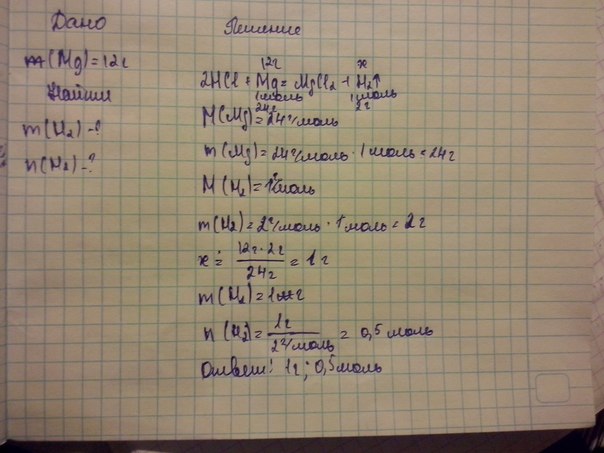 Дано
m(Mg)=12г
Найти
m(H₂)-?
n(H₂)-?
Решение
12г x
2HCl + Mg = MgCl₂ + H₂↑
1моль 1моль
24г 2г
M(Mg)=24г/моль
m(Mg)=24г/моль · 1моль = 24г
M(H₂)=2г/моль
m(H₂)=2г/моль · 1моль = 2г
x = 12г·2г / 24г = 1г
m(H₂)=1г
n(H₂)= 1г / 2г/моль = 0,5 моль
Ответ: 1г; 0,5моль